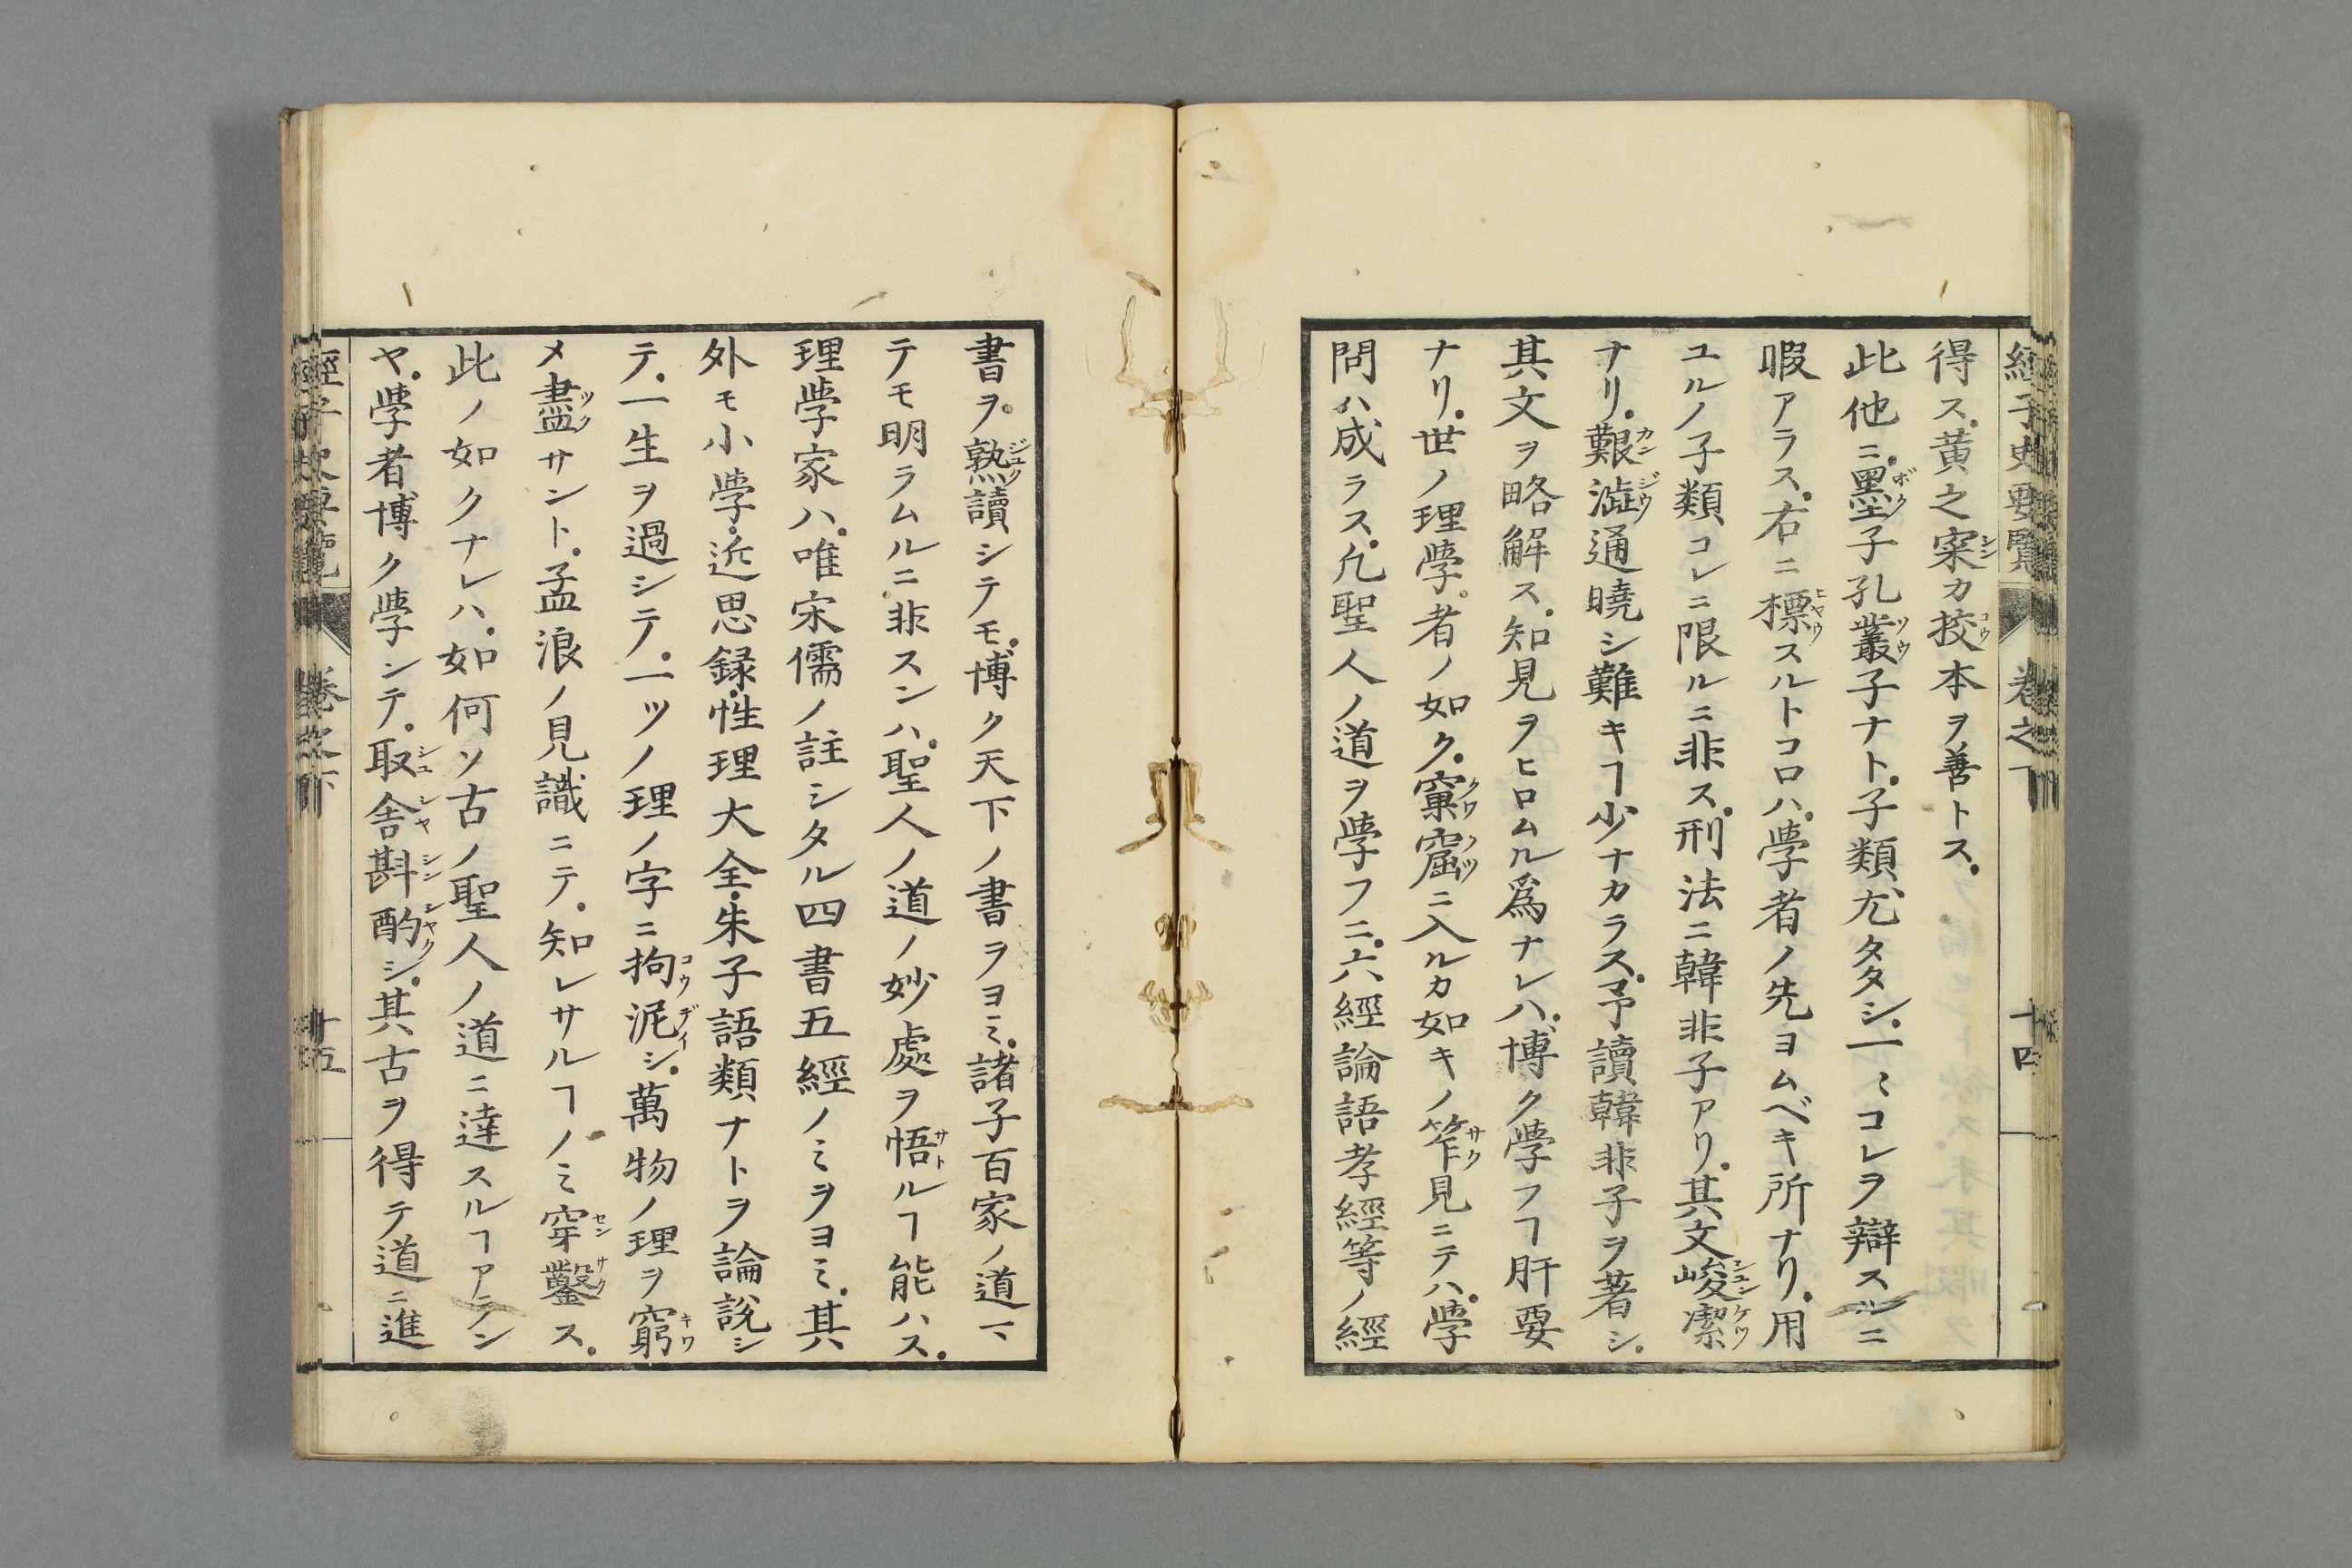 得ス。黄之寀カ挍本ヲ善トス。
此他ニ。墨子孔叢子ナト。子類尤タタシ。一〻コレヲ辯スルニ
暇アラス。右ニ標スルトコロハ。學者ノ先ヨムベキ所ナリ。用
ユルノ子類コレニ限ルニ非ス。刑法ニ韓非子アリ。其文峻潔
ナリ。艱澁通曉シ難キヿ少ナカラス。予讀韓非子ヲ著シ。
其文ヲ略解ス。知見ヲヒロムル爲ナレハ。博ク學フヿ肝要
ナリ。世ノ理學者ノ如ク。窠窟ニ入ルカ如キノ窄見ニテハ。學
問ハ成ラス。凡聖人ノ道ヲ學フニ。六經論語孝經等ノ經
書ヲ。熟讀シテモ。博ク天下ノ書ヲヨミ。諸子百家ノ道マ
テモ明ラムルニ非スンハ。聖人ノ道ノ妙處ヲ悟ルヿ能ハス。
理學家ハ。唯宋儒ノ註シタル四書五經ノミヲヨミ。其
外モ小學。近思録。性理大全。朱子語類ナトヲ論説シ
テ。一生ヲ過シテ。一ツノ理ノ字ニ拘泥シ。萬物ノ理ヲ窮
メ盡サント。孟浪ノ見識ニテ。知レサルヿノミ穿鑿ス。
此ノ如クナレハ。如何ソ古ノ聖人ノ道ニ達スルヿアラン
ヤ。學者博ク學ンテ。取舎斟酌シ。其古ヲ得テ道ニ進
經子史要覽 卷之下 十四
卷之下 十五